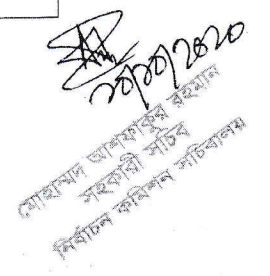 ২০/১০/২০২০
মোহাম্মদ আশফাকুর রহমান
সহকারী সচিব
নির্বাচন কমিশন সচিবালয়